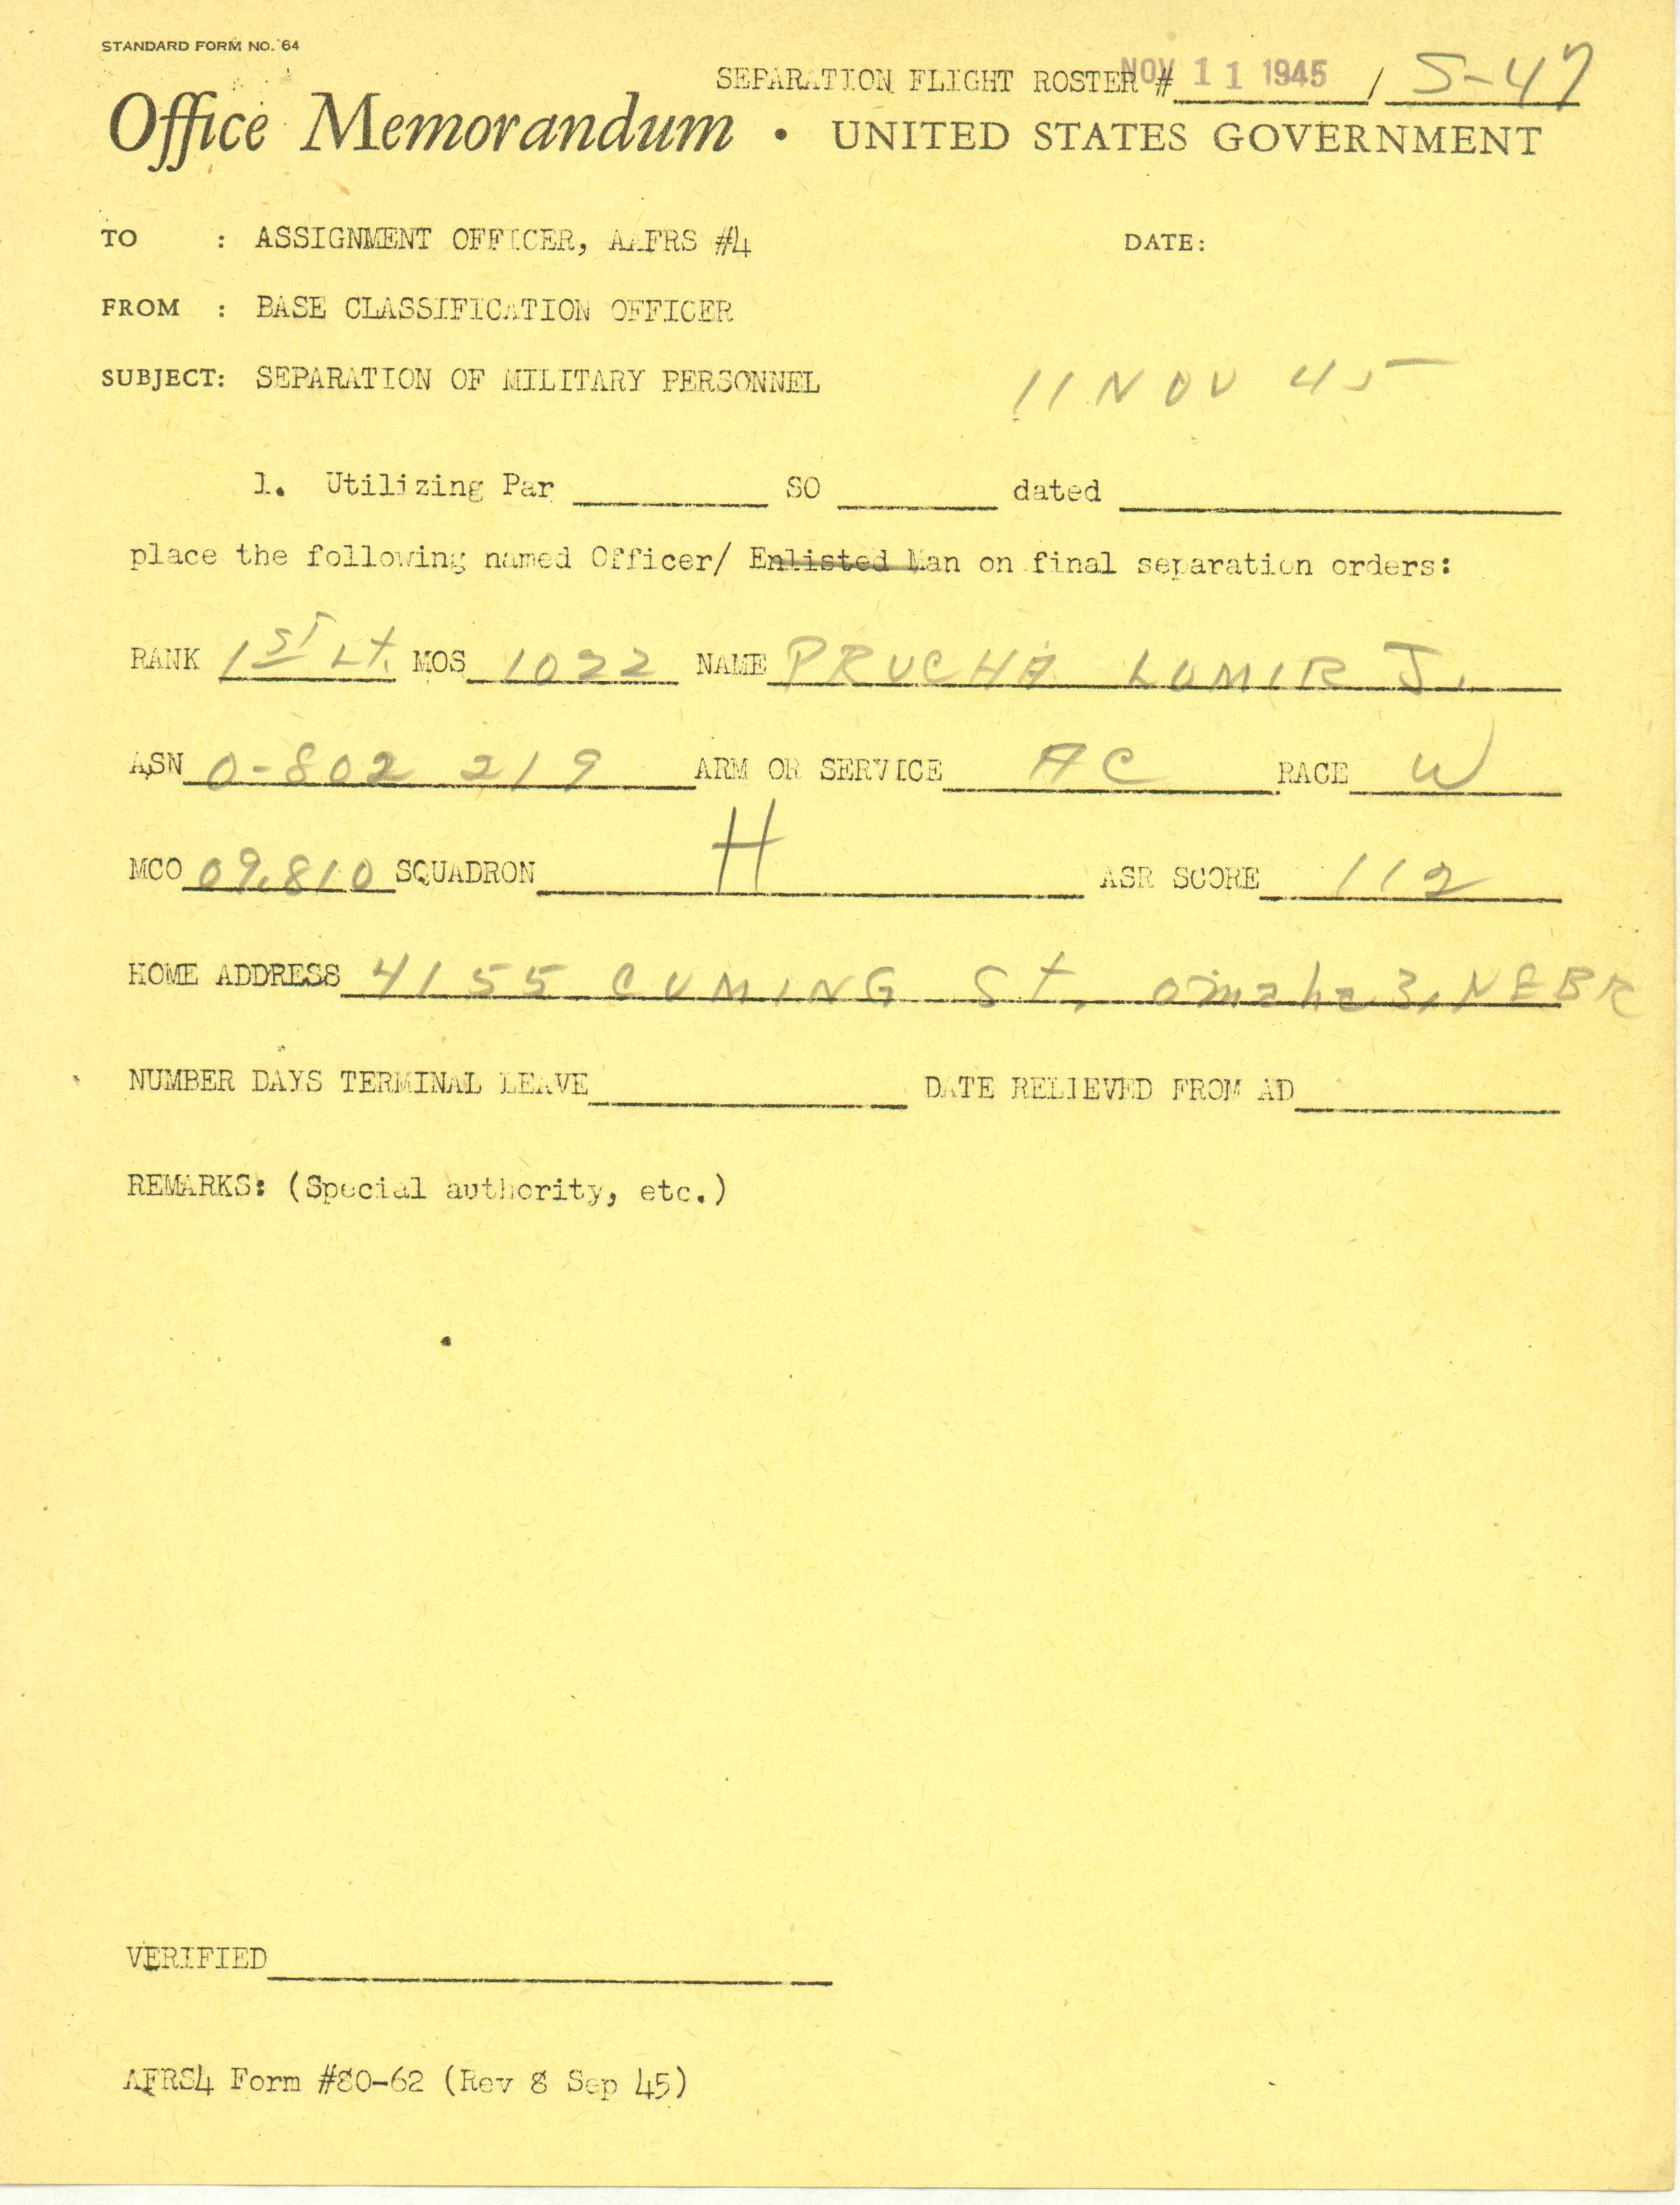 STANDARD FORM NO. 64
SEPARATION FLIGHT ROSTER # NOV 11 1945 / S-47
Office Memorandum • UNITED STATES GOVERNMENT
TO : ASSIGNMENT OFFICER, AAFRS #4 DATE:
FROM : BASE CLASSIFICATION OFFICER
SUBJECT: SEPARATION OF MILITARY PERSONNEL 11 NOV 45
1. Utilizing Par ________ SO ________ dated ________
place the following named Officer/ Enlisted Man on final separation orders:
RANK 1ST Lt. MOS 1022 NAME PRUCHA LUMIR J.
ASN 0-802 219 ARM OR SERVICE AC RACE W
MCO 09.810 SQUADRON H ASR SCORE 112
HOME ADDRESS 4155 CUMING St. Omaha 3, NEBR
NUMBER DAYS TERMINAL LEAVE ________ DATE RELIEVED FROM AD ________
REMARKS: (Special authority, etc.)
VERIFIED ________
AFRS4 Form #80-62 (Rev 8 Sep 45)